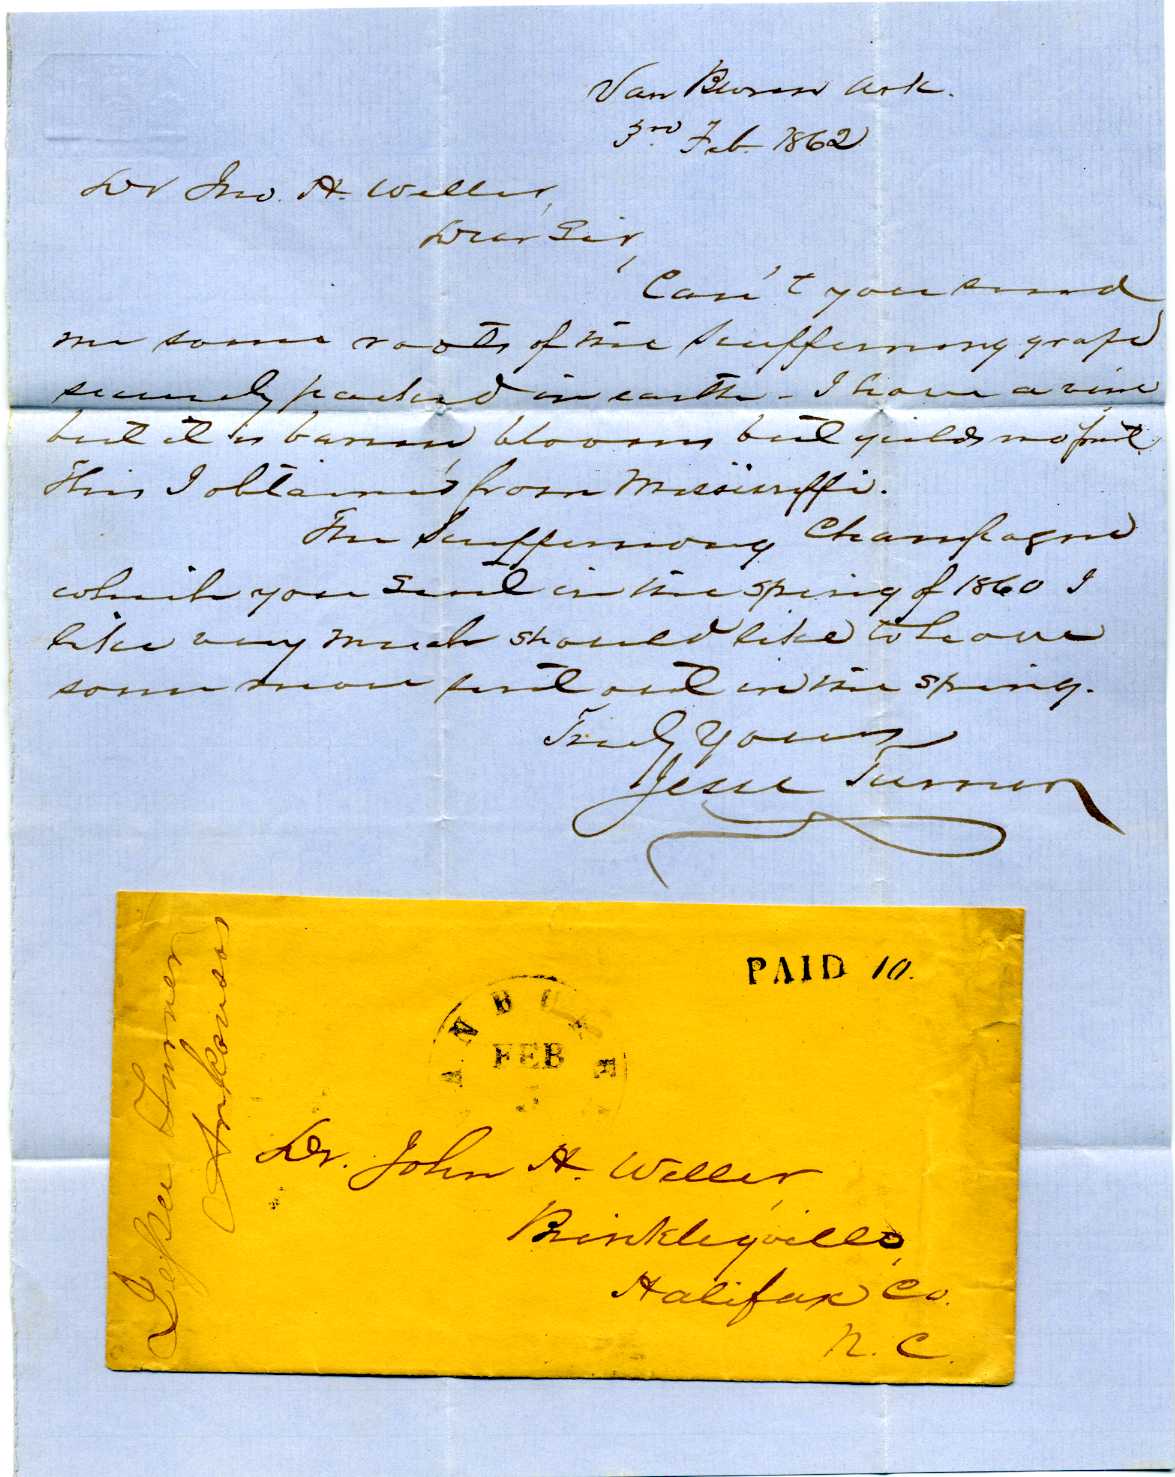 Van Buren Ark.
3rd Feb. 1862
Dr Jno. A. Weller,
Dear Sir,
Can't you send
me some roots of the Scuffernong grape
securely packed in earth - I have a vine
but it is barren, blooms but yields no fruit
This I obtained from Mississippi.
The Scuffernong Champagne
which you sent in the spring of 1860 I
like very much should like to have
some more sent out in the spring.
Truly Yours
Jesse Turner
PAID 10.
AN BUREN
FEB
Jesse Turner
Arkansas
Dr. John A. Weller,
Brinkleyville,
Halifax Co.
N. C.